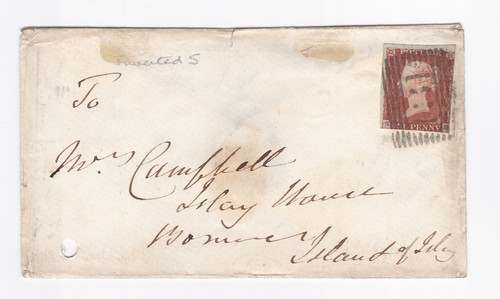 Inverted S
POSTAGE
To
ONE PENNY
Mrs Campbell
Islay House
Bowmore
Island of Islay